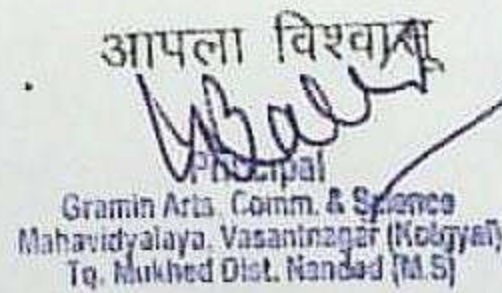 आपला विश्वासू
Principal
Gramin Arts, Comm. & Science
Mahavidyalaya, Vasantnagar (Kotgyal)
Tq. Mukhed Dist. Nanded (M.S)